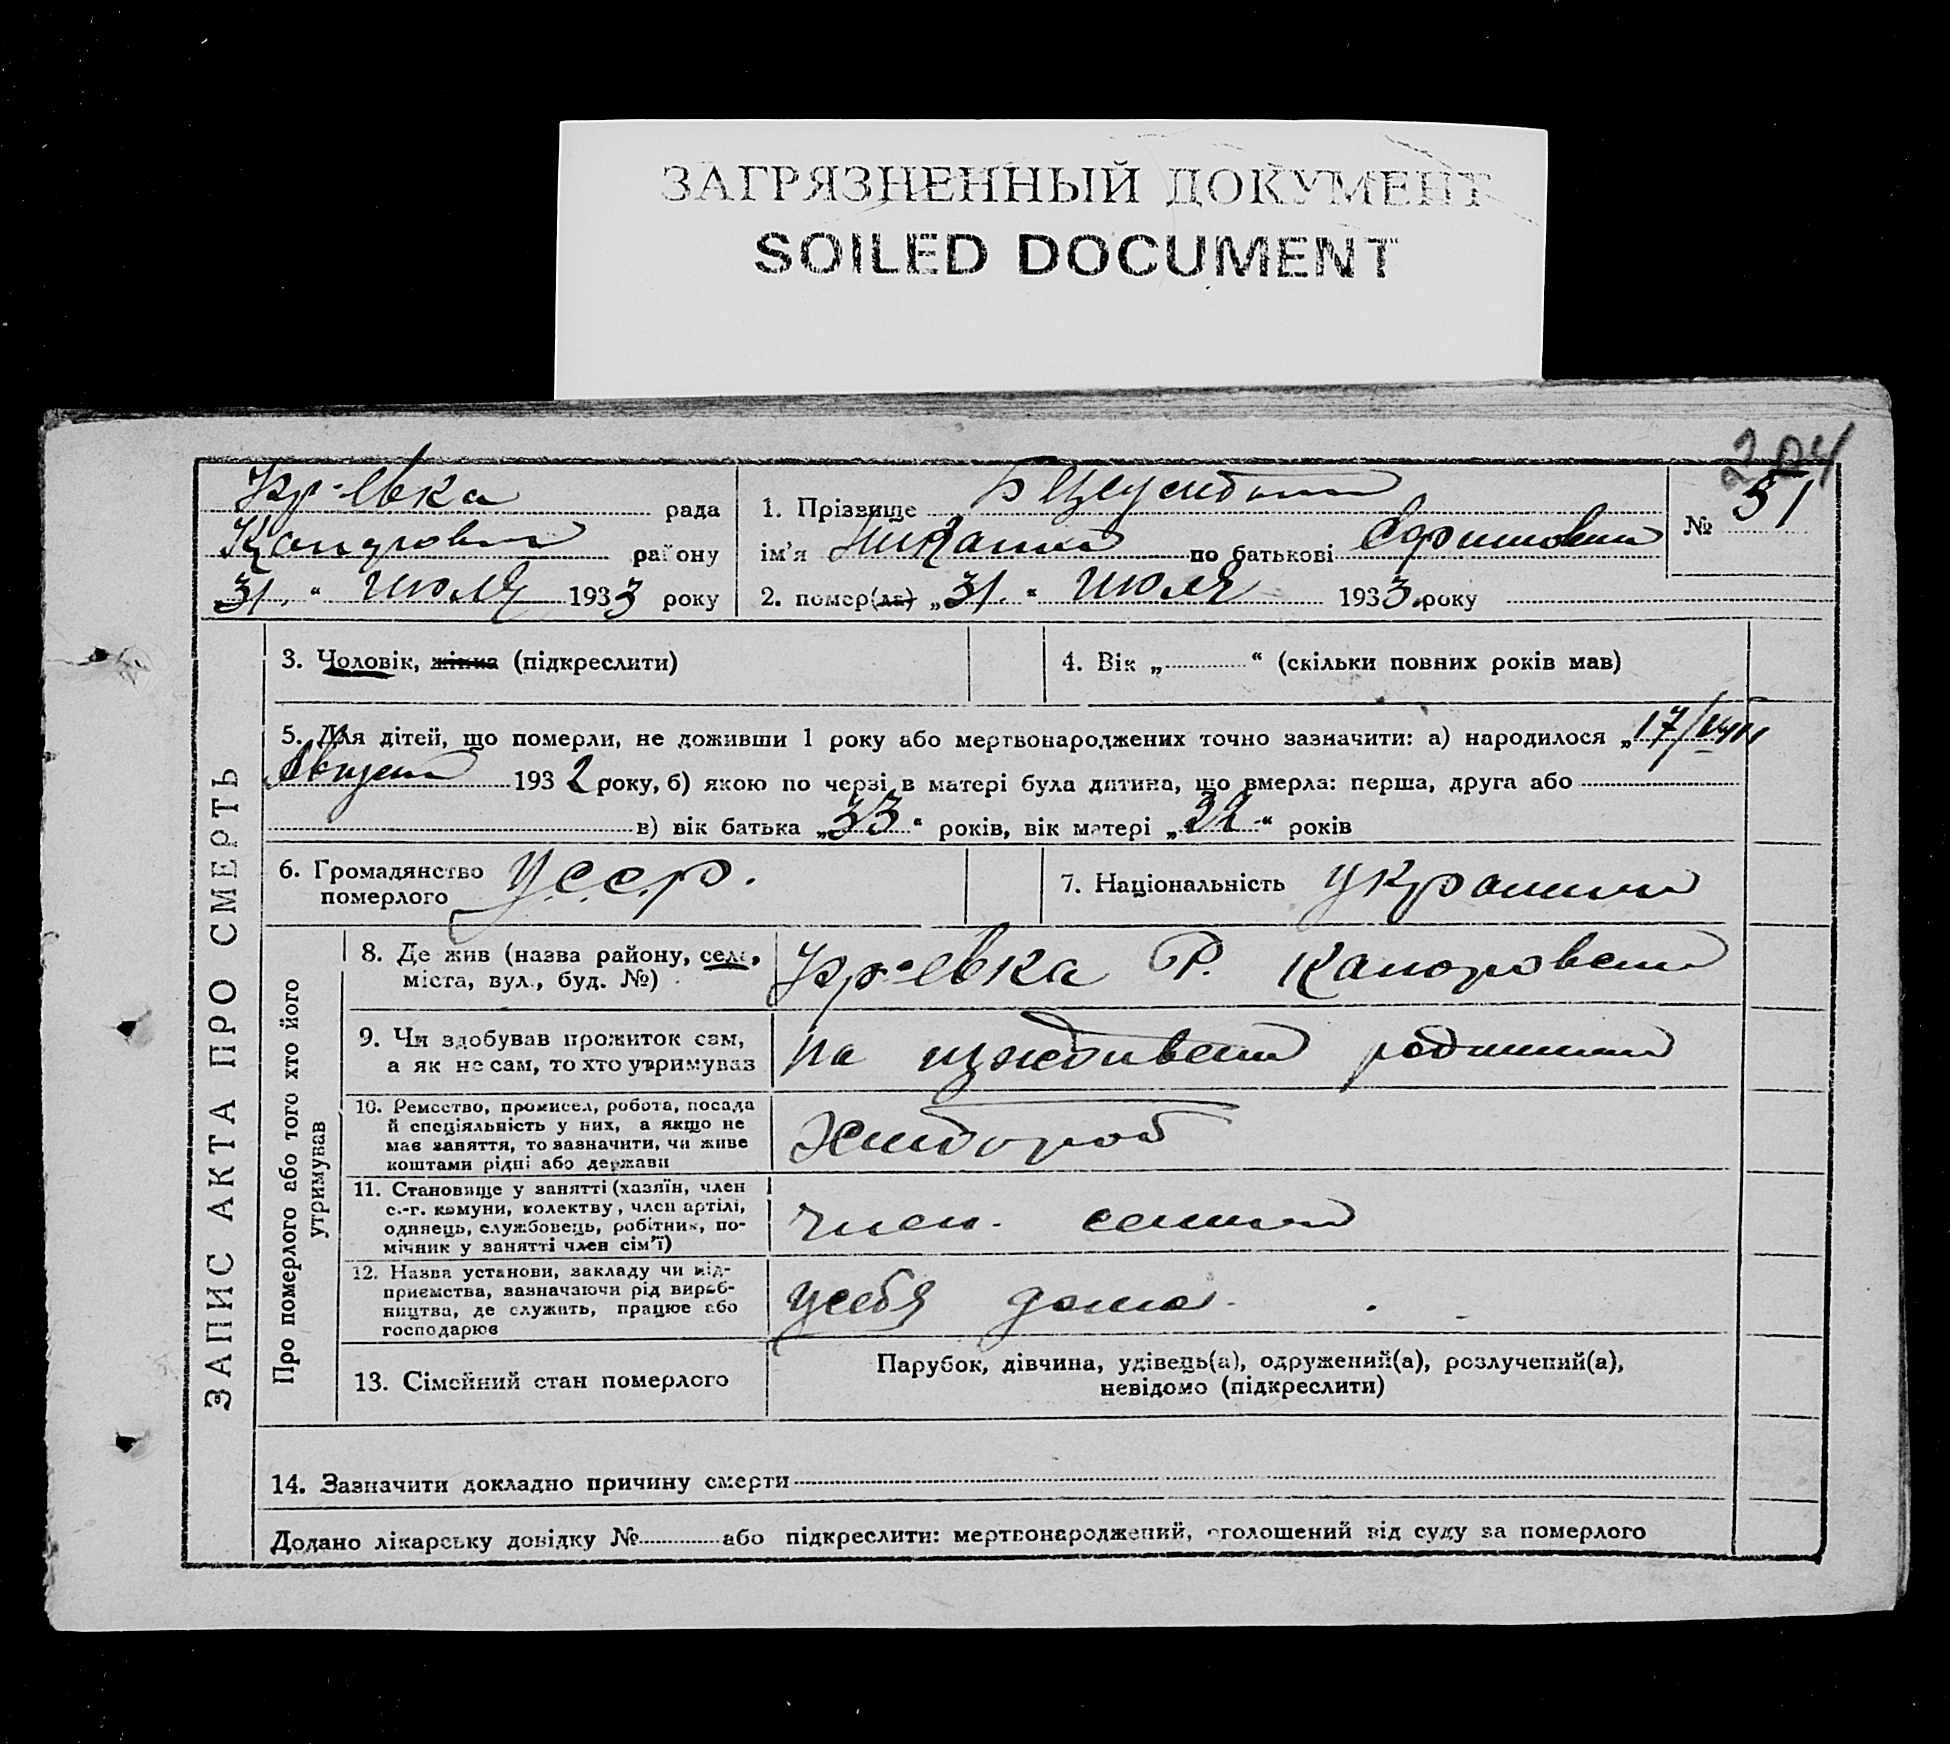 ЗАГРЯЗНЕННЫЙ ДОКУМЕНТ
SOILED DOCUMENT
204
Кр-євка рада
району
31 " июля 1933 року
1. Прізвище
ім'я по батькові
2. помер(ла) „31 " июля 1933 року
№ 51
ЗАПИС АКТА ПРО СМЕРТЬ
3. Чоловік, жінка (підкреслити)
4. Вік „ “ (скільки повних років мав)
5. Для дітей, що померли, не доживши 1 року або мертвонароджених точно зазначити: а) народилося „17/
Август 1932 року, б) якою по черзі в матері була дитина, що вмерла: перша, друга або
в) вік батька „33“ років, вік матері „32“ років
6. Громадянство
померлого
У.С.С.Р.
7. Національність
Про померлого або того хто його
утримував
8. Де жив (назва району, села,
міста, вул., буд. №)
Кр-євка Р.
9. Чи здобував прожиток сам,
а як не сам, то хто утримував
На
10. Ремесство, промисел, робота, посада
й спеціяльність у них, а якщо не
має заняття, то зазначити, чи живе
коштами рідні або держави
Хлібороб
11. Становище у занятті (хазяїн, член
с.-г. комуни, колектву, член артілі,
одинець, службовець, робітник, по-
мічник у занятті член сім'ї)
член семьи
12. Назва установи, закладу чи під-
приємства, зазначаючи рід вироб-
ництва, де служить, працює або
господарює
у себя дома.
13. Сімейний стан померлого
Парубок, дівчина, удівець(а), одружений(а), розлучений(а),
невідомо (підкреслити)
14. Зазначити докладно причину смерти
Додано лікарську довідку № або підкреслити: мертвонароджений, оголошений від суду за померлого